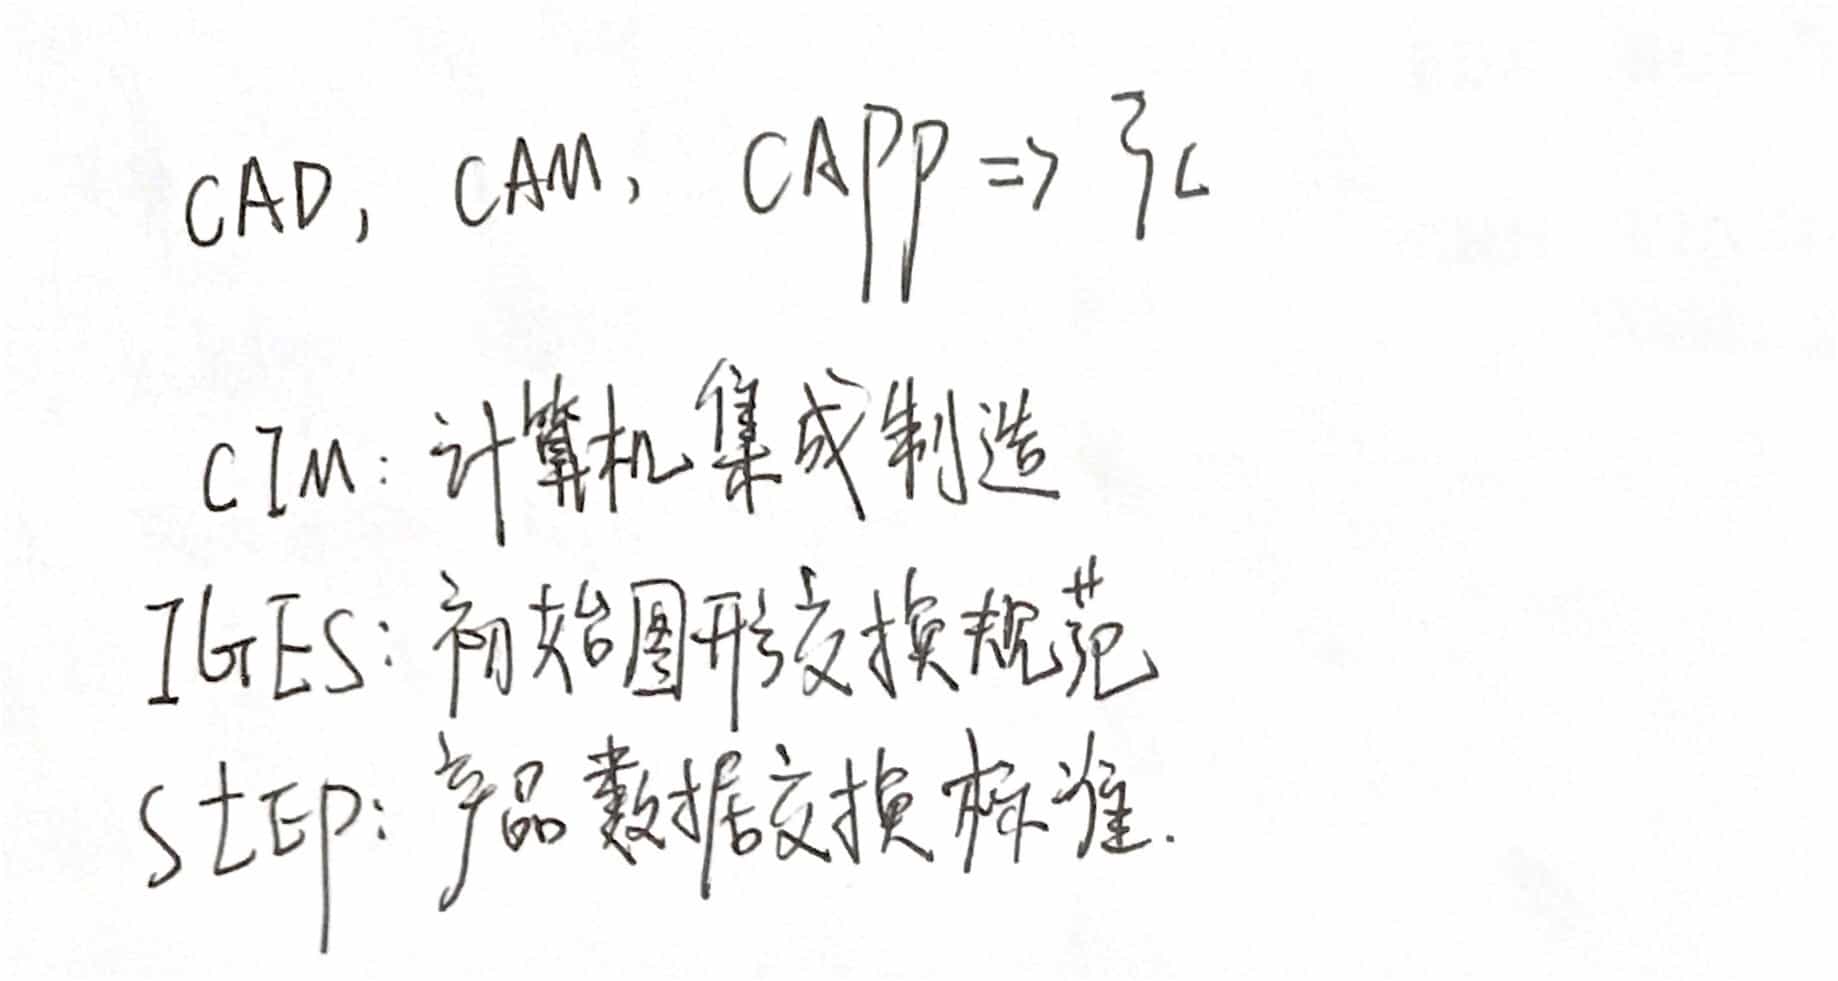 CAD, CAM, CAPP =>
CIM: 计算机集成制造
IGES: 初始图形交换规范
STEP: 产品数据交换标准.